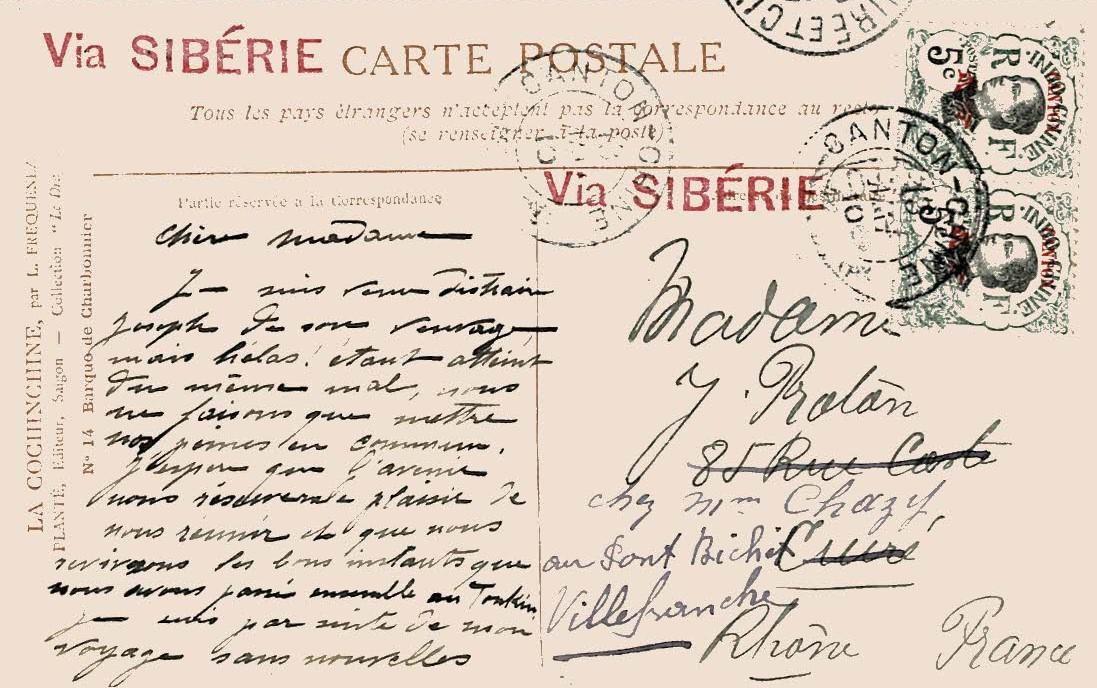 Via SIBÉRIE CARTE POSTALE
Tous les pays étrangers n'acceptent pas la correspondance au recto
(se renseigner à la poste)
Via SIBÉRIE
Partie réservée à la Correspondance
LA COCHINCHINE, par L. FREQUENEZ
PLANTÉ, Editeur, Saigon — Collection "La
Nº 14 Barque de Charbonnier
Chère Madame
Je suis venu distraire
Joseph de son veuvage
mais hélas! étant atteint
du même mal, nous
ne faisons que mettre
nos peines en commun.
J'espère que l'avenir
nous réservera le plaisir de
nous réunir et que nous
revivrons les bons instants que
nous avons passés ensemble au Tonkin
Je suis par suite de mon
voyage sans nouvelles
Madame
J. Rolân
85 Rue Coste
chez Mme Chazy,
au Pont Bichet Cuire
Villefranche
Rhône France
CANTON
CHINE
CANTON-CHINE
10
INDOCHINE
CANTON
R F
5c
INDOCHINE
CANTON
R F
5c